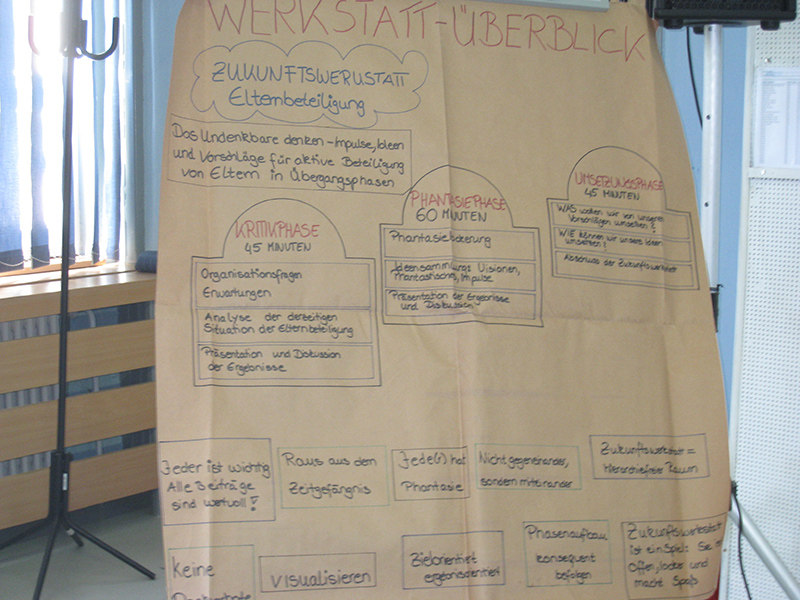 WERKSTATT-ÜBERBLICK
ZUKUNFTSWERKSTATT
Elternbeteiligung
Das Undenkbare denken – Impulse, Ideen
und Vorschläge für aktive Beteiligung
von Eltern in Übergangsphasen
KRITIKPHASE
45 MINUTEN
Organisationsfragen
Erwartungen
Analyse der derzeitigen
Situation der Elternbeteiligung
Präsentation und Diskussion
der Ergebnisse
PHANTASIEPHASE
60 MINUTEN
Phantasielockerung
Ideensammlung, Visionen,
Phantastisches, Impulse
Präsentation der Ergebnisse
und Diskussion
UMSETZUNGSPHASE
45 MINUTEN
WAS wollen wir von unseren
Vorschlägen umsetzen?
WIE können wir unsere Ideen
umsetzen?
Abschluss der Zukunftswerkstatt
Jeder ist wichtig
Alle Beiträge
sind wertvoll!
Raus aus dem
Zeitgefängnis
Jede(r) hat
Phantasie
Nicht gegeneinander,
sondern miteinander
Zukunftswerkstatt =
Hierarchiefreier Raum
Keine
VISUALISIEREN
Zielorientiert
ergebnisorientiert
Phasenaufbau
konsequent
befolgen
Zukunftswerkstatt
ist ein Spiel: Sie
Offen, locker und
macht Spaß